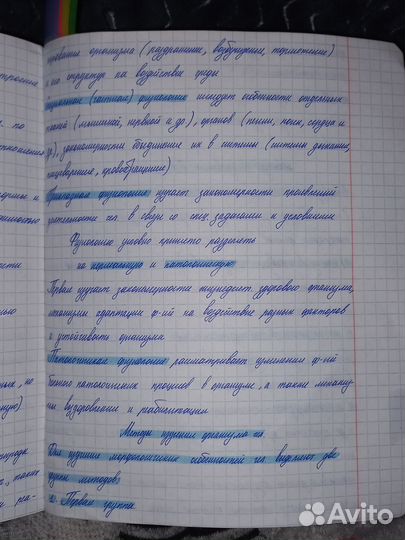 строение
по
ности
но
реагирования организма (раздражение, возбуждение, торможение)
и его структур на воздействие среды
Специальная (частная) физиология исследует особенности отдельных
тканей (мышечной, нервной и др.), органов (печени, почек, сердца и
др.), закономерности объединения их в системы (системы дыхания,
пищеварения, кровообращения)
Прикладная физиология изучает закономерности проявлений
деятельности чел. в связи со спец. задачами и условиями
Физиологию условно принято разделять
на нормальную и патологическую
Первая изучает закономерности жизнедеят. здорового организма,
механизмы адаптации ф-ий на воздействие разных факторов
и устойчивость организма
Патологическая физиология рассматривает изменения ф-ий
больного патологических процессов в организме, а также механиз
мы выздоровления и реабилитации
Методы изучения организма чел.
Для изучения морфологических особенностей чел. выделяют две
группы методов:
1. Первая группа
Avito